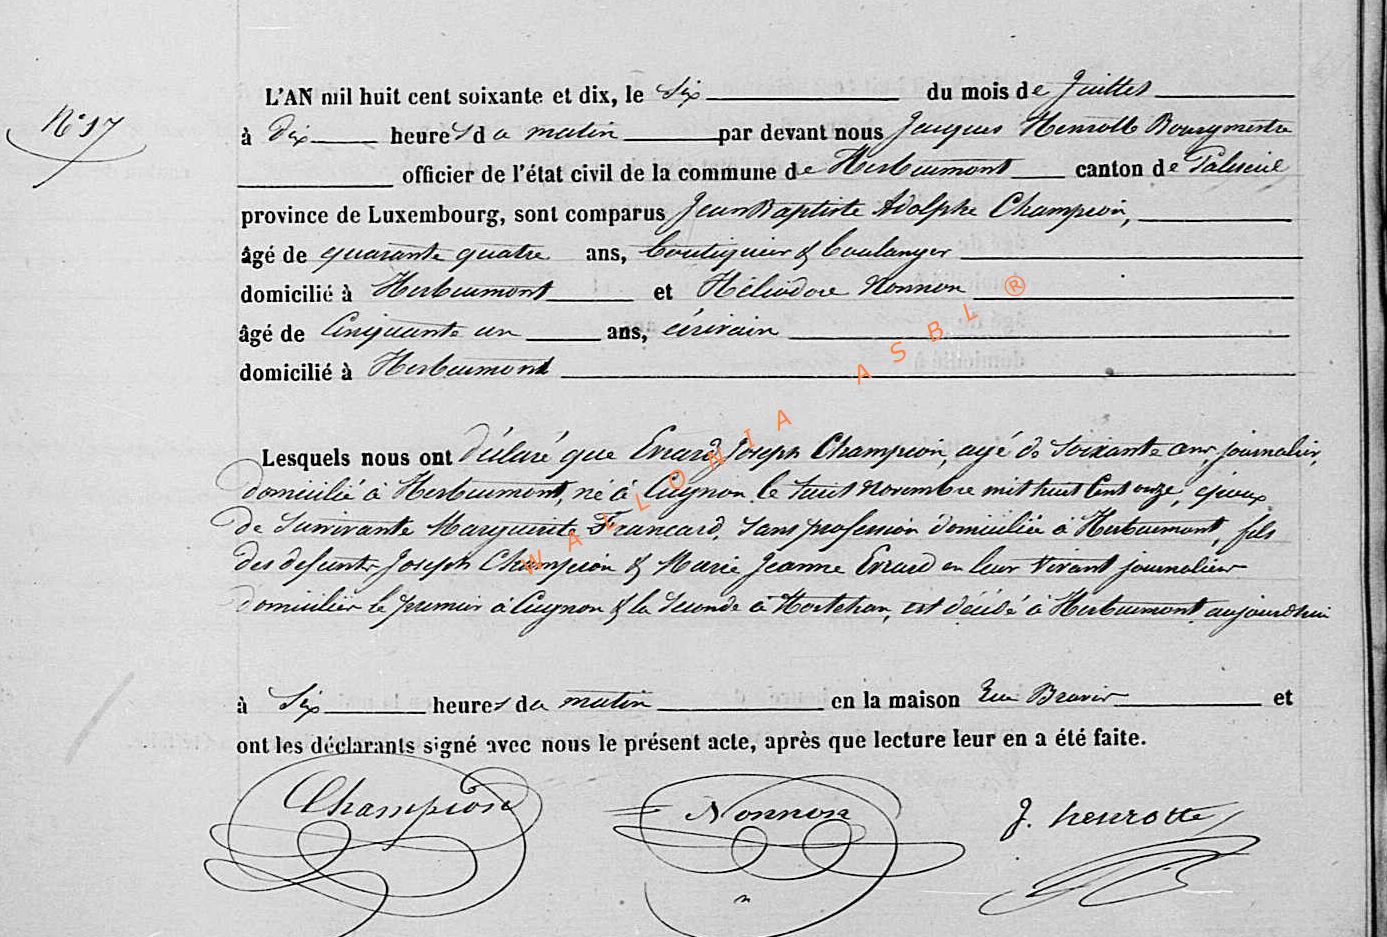 N° 17
L'AN mil huit cent soixante et dix, le six du mois de Juillet
à dix heures du matin par devant nous Jacques Henrotte Bourgmestre
officier de l'état civil de la commune de Herbeumont canton de Paliseul
province de Luxembourg, sont comparus Jean Baptiste Adolphe Champion,
âgé de quarante quatre ans, boutiquier & boulanger
domicilié à Herbeumont et Héliodore Nonnon
âgé de Cinquante un ans, écrivain
domicilié à Herbeumont
Lesquels nous ont déclaré que Evrard Joseph Champion, agé de soixante ans, journalier,
domicilié à Herbeumont, né à Cugnon le huit Novembre mil huit cent onze, époux
de survivante Marguerite Francard, sans profession domiciliée à Herbeumont, fils
des defunts Joseph Champion & Marie Jeanne Evrard en leur vivant journalier
domiciliés le premier à Cugnon & la seconde à Mortehan, est décédé à Herbeumont aujourd'hui
à six heures du matin en la maison Rue et
ont les déclarants signé avec nous le présent acte, après que lecture leur en a été faite.
Champion Nonnon J. henrotte
WALLONIA ASBL ®